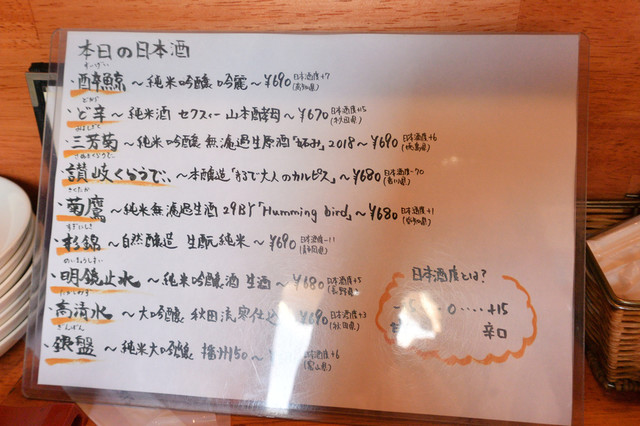 本日の日本酒
すいげい
・酔鯨 〜純米吟醸 吟麗〜¥690 日本酒度+7 (高知県)
どから
・ど辛 〜純米酒 セクスィー山本酵母〜¥670 日本酒度+15 (秋田県)
みよしぎく
・三芳菊 〜純米吟醸 無濾過生原酒「 」2018〜¥690 日本酒度+6 (徳島県)
さぬきくらうでぃ
・讃岐くらうでぃ 〜本醸造「まるで大人のカルピス」〜¥680 日本酒度-70 (香川県)
きくたか
・菊鷹 〜純米無濾過生酒 29BY「Humming bird」〜¥680 日本酒度+1 (愛知県)
すぎにしき
・杉錦 〜自然醸造 生酛純米〜¥690 日本酒度-11 (静岡県)
めいきょうしすい
・明鏡止水 〜純米吟醸酒 生酒〜¥680 日本酒度+5 (長野県)
たかしみず
・高清水 〜大吟醸 秋田流寒仕込 690 日本酒度+3 (秋田県)
ぎんばん
・銀盤 〜純米大吟醸 播州50〜 日本酒度+6 (富山県)
日本酒度とは?
0‥‥+15
辛口